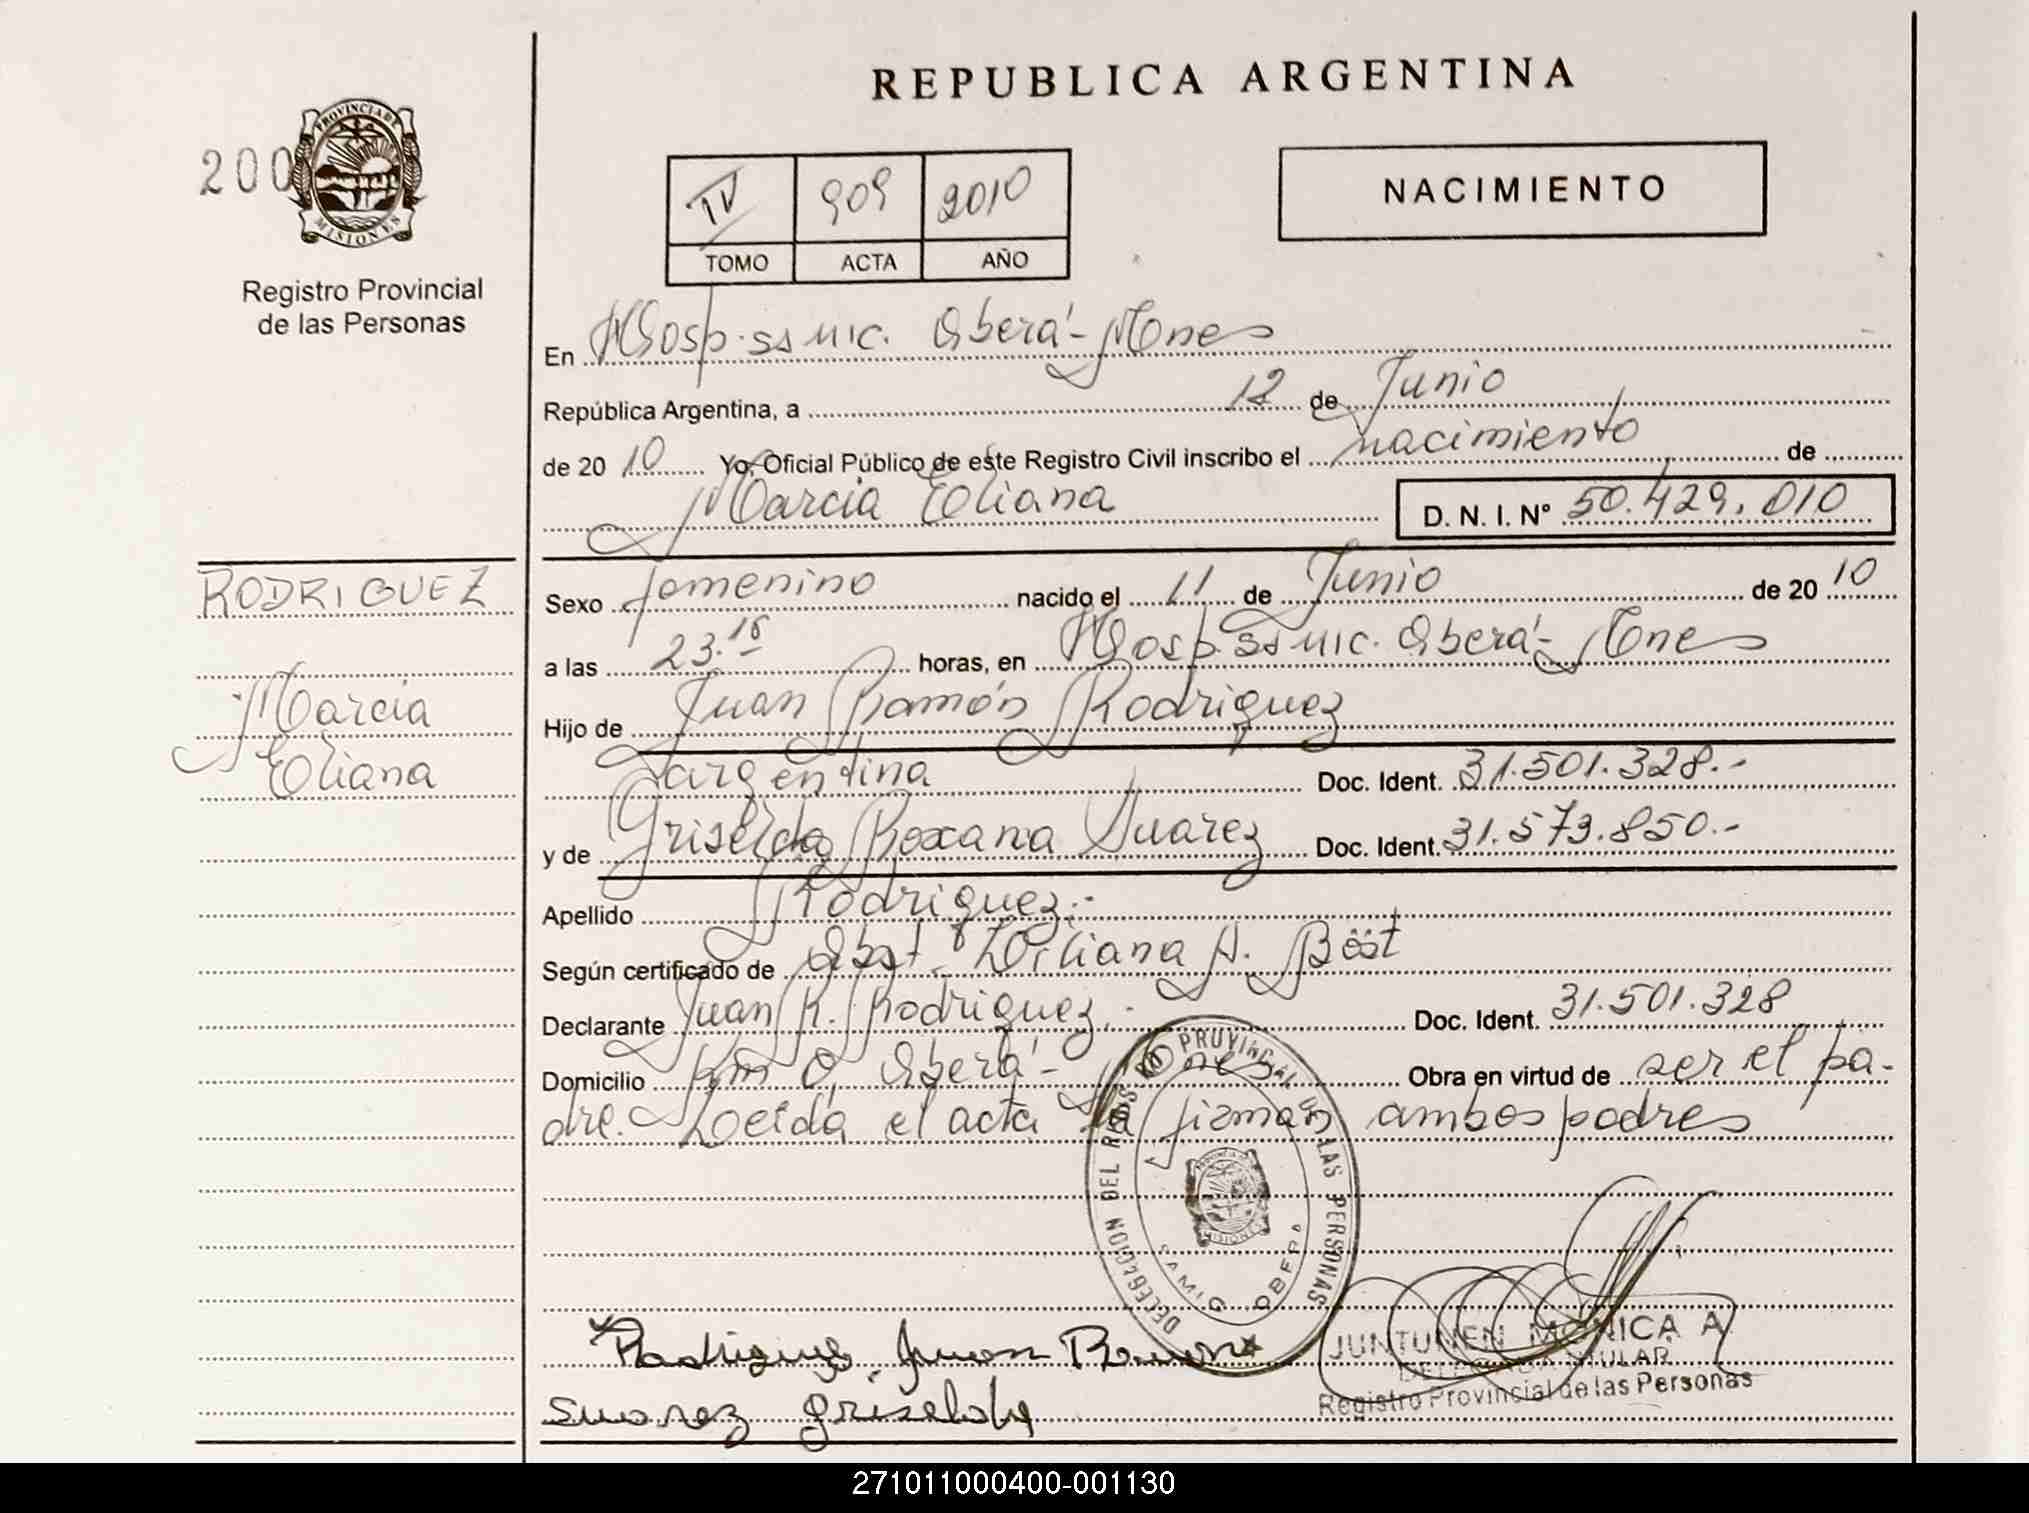 REPUBLICA ARGENTINA
200
PROVINCIA DE
MISIONES
Registro Provincial
de las Personas
IV 909 2010
TOMO ACTA AÑO
NACIMIENTO
En Hosp. ss mic. Oberá - Mnes
República Argentina, a 12 de Junio
de 20 10 Yo, Oficial Público de este Registro Civil inscribo el nacimiento de
Marcia Eliana D. N. I. Nº 50.429.010
RODRIGUEZ
Marcia
Eliana
Sexo femenino nacido el 11 de Junio de 20 10
a las 23.15 horas, en Hosp. ss mic. Oberá - Mnes
Hijo de Juan Ramón Rodriguez
argentina Doc. Ident. 31.501.328.-
y de Griselda Roxana Suarez Doc. Ident. 31.573.850.-
Apellido Rodriguez.-
Según certificado de Obst. Liliana A. Böst
Declarante Juan R. Rodriguez.- Doc. Ident. 31.501.328
Domicilio Km 0, Oberá - Mnes Obra en virtud de ser el pa-
dre. Leída el acta la firman ambos padres
DELEGACION DEL REGISTRO PROVINCIAL DE LAS PERSONAS
SAMIC OBERA
Rodriguez Juan Ramon
Suarez Griselda
JUNTUNEN MONICA A
DELEGADA TITULAR
Registro Provincial de las Personas
271011000400-001130